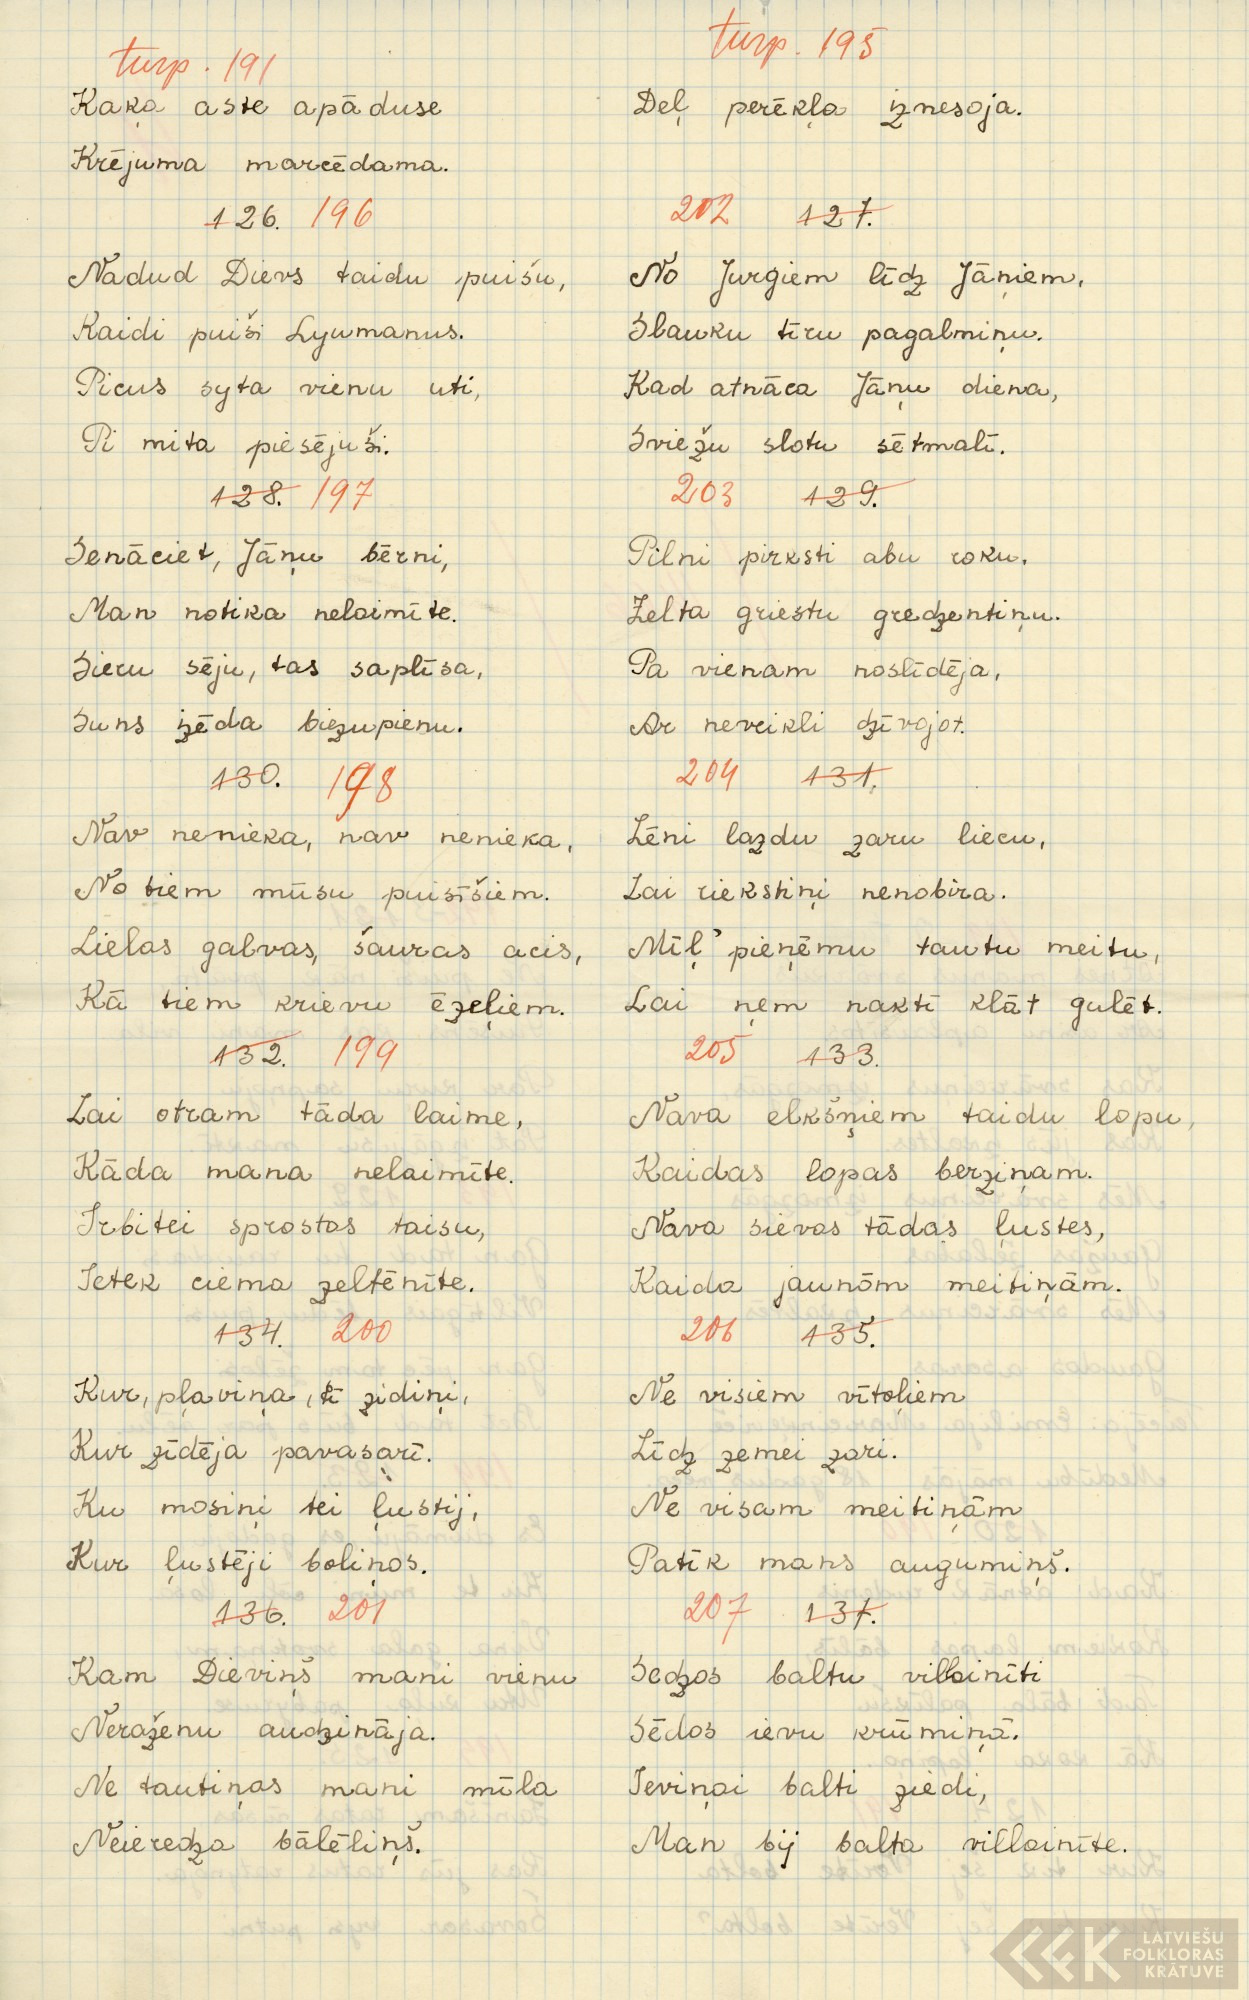 turp. 191
Kaķa aste apāduse
Krējuma marcēdama.
126. 196
Nadud Dievs taidu puišu,
Kaidi puiši Lyumanus.
Picus syta vienu uti,
Pi mita piesējuši.
128. 197
Senāciet, Jāņu bērni,
Man notika nelaimīte.
Sieru sēju, tas saplīsa,
Suns izēda biezupienu.
130. 198
Nav nenieka, nav nenieka,
No tiem mūsu puisīšiem.
Lielas galvas, šauras acis,
Kā tiem krievu ēzeļiem.
132. 199
Lai otram tāda laime,
Kāda mana nelaimīte.
Irbitei sprostas taisu,
Ietek ciema zeltēnīte.
134. 200
Kur, pļaviņa, tī zidiņi,
Kur zīdēja pavasarī.
Ku mosiņi tei ļustij,
Kur ļustēji boliņos.
136. 201
Kam Dieviņš mani vienu
Neraženu audzināja.
Ne tautiņas mani mīla
Neieredza bālēliņš.
turp. 195
Deļ perēkļa iznesoja.
202 127.
No Jurģiem līdz Jāņiem,
Slauku tīru pagalmiņu.
Kad atnāca Jāņu diena,
Sviežu slotu sētmalī.
203 129.
Pilni pirksti abu roku.
Zelta griestu gredzentiņu.
Pa vienam noslīdēja,
Ar neveikli dzīvojot.
204 131.
Lēni lazdu zaru liecu,
Lai riekstiņi nenobira.
Mīļ' pieņēmu tautu meitu,
Lai ņem naktī klāt gulēt.
205 133.
Nava elkšņiem taidu lopu,
Kaidas lopas berziņam.
Nava sievas tādas ļustes,
Kaida jaunōm meitiņām.
206 135.
Ne visiem vītoļiem
Līdz zemei zari.
Ne visam meitiņām
Patīk mans augumiņš.
207 137.
Sedzos baltu villainīti
Sēdos ievu krūmiņā.
Ieviņai balti ziedi,
Man bij balta villainīte.
LATVIEŠU
FOLKLORAS
KRĀTUVE